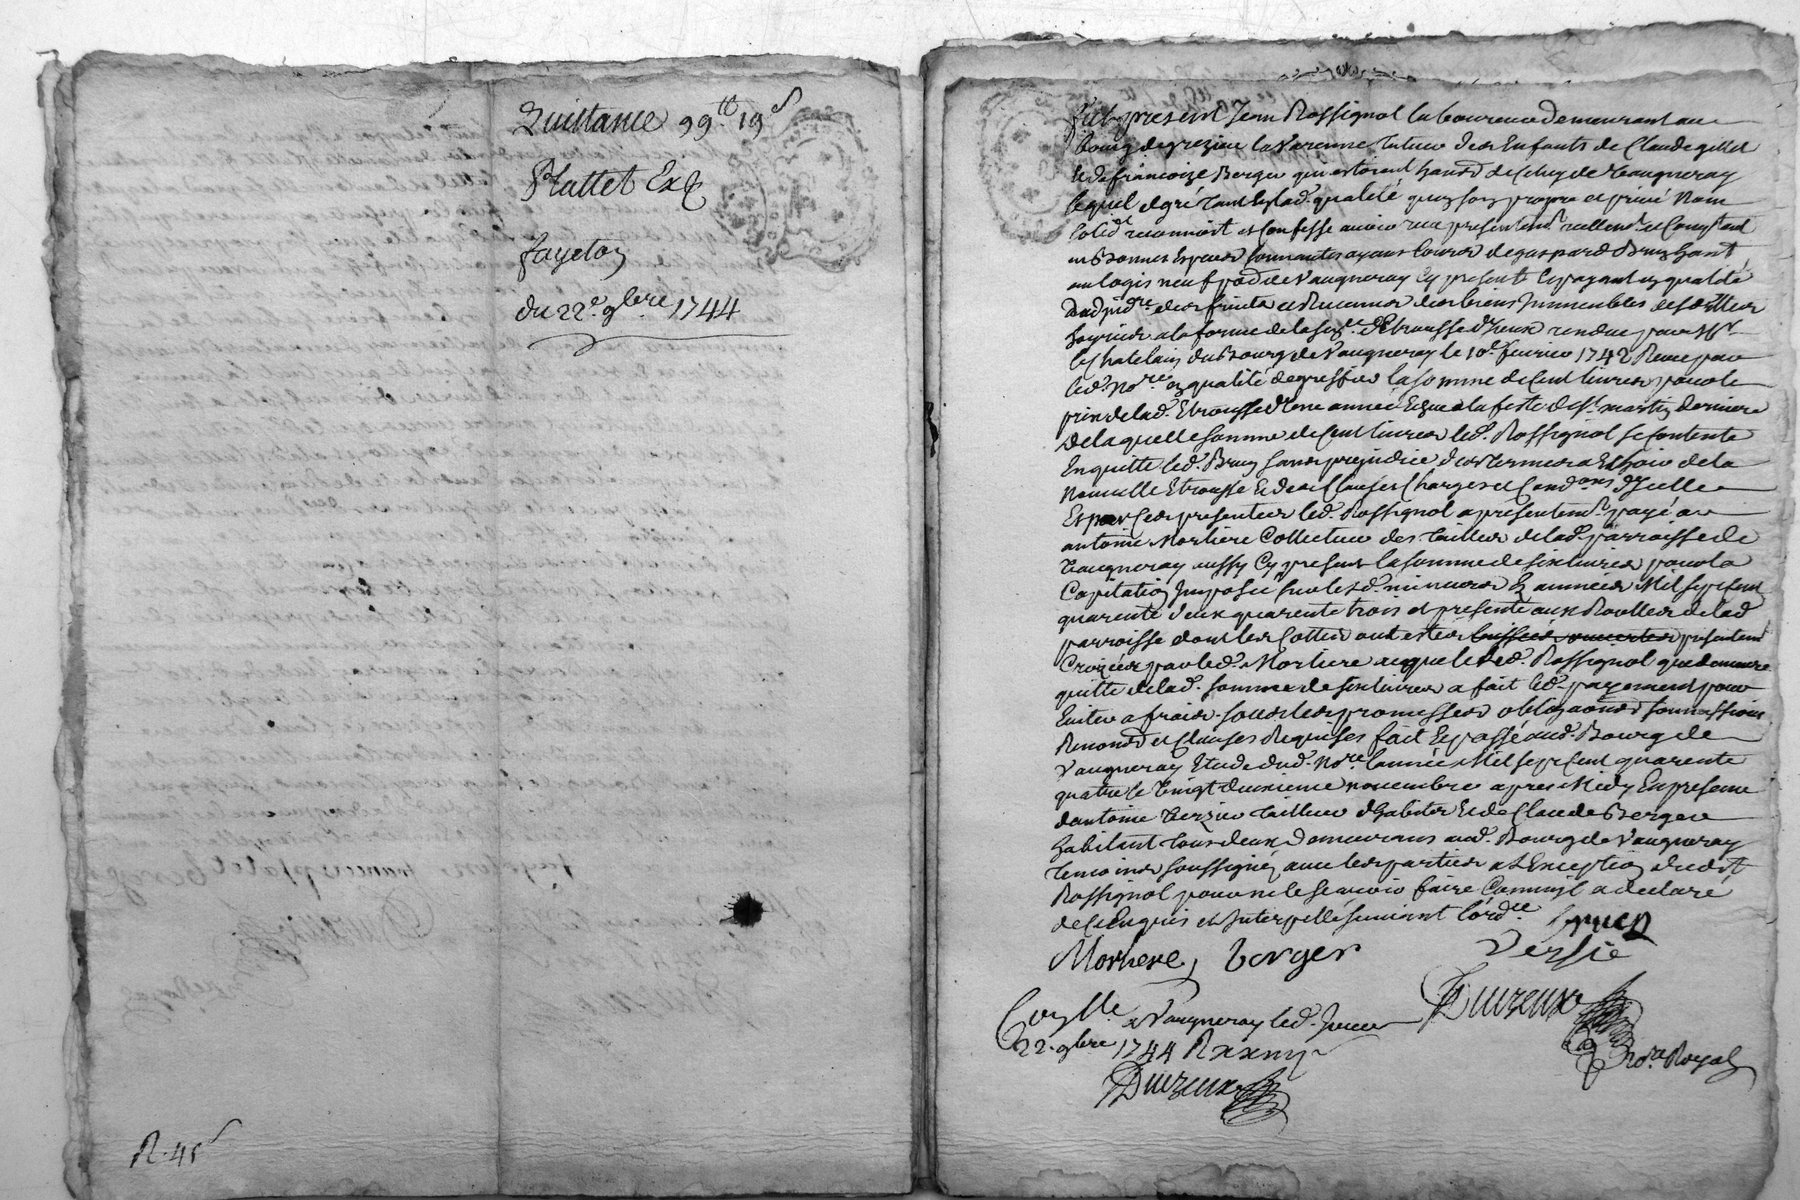 Quittance 99ᵗᵗ 19ˢ
Plattet Exp
fayeton
du 22ᵉ. 9bre 1744
R. 45ˢ
fut present Jean Rossignol laboureur demeurant au
bourg de grezieu la Varenne tuteur des Enfants de Claude gillet
et de francoize Berger qui estoient Gans de Vaugneray
lequel de gré tant esd. qualité qu'en son propre et privé Nom
reconnoit et Confesse avoir receu presentemt. reellemt. et Comptant
en Bonnes Especes sonnantes ayans Cours de gaspard Brun hant
au logis neuf pdce Vaugneray Cy present et Cy payant en qualité
Dadjre. des fruits et Revenus des biens Immeubles desdits
a la forme de la sen. d'Etrousse d'Iceux rendue par Mr
le Chatelain du Bourg de Vaugneray le 10e. fevrier 1742 Receue par
led. Nore. en qualité de greffier la somme de Cent livres pour le
prix de lad. Etrousse d'une année Echue a la feste de St. martin derniere
de laquelle somme de Cent livres led. Rossignol se Contente
En quitte led. Brun sans prejudice des termes a Echoir de la
Nouvelle Etrousse et des Clauses Charges et Condons d'Icelle
Et par Ces presentes led. Rossignol a presentemt. payé a
antoine Morliere Collecteur des tailles de lad. parroisse de
Vaugneray aussy Cy present la somme de six livres pour la
Capitation Imposée sur lesd. mineurs Es années Mil sept Cent
quarente deux quarente trois et presente aux Roolles de lad.
parroisse dont les Cottes ont estés presentemt
Croizées par led. Morliere auquel led. Rossignol que demeure
quitte de lad. somme de six livres a fait led. payement pour
Eviter a frais. sous les promesses obligaons soumissions
Renonons et Clauses Requises fait et passé aud. Bourg de
Vaugneray Etude dud. Nore. l'année Mil sept Cent quarente
quatre le Vingt deuxieme novembre apres Midy En presence
d'antoine Verzieu tailleur d'habits et de Claude Berger
habitant tous deux demeurans aud. Bourg de Vaugneray
temoins soussignez avec les parties a l'Exception dudit
Rossignol pour ne le scavoir faire Comm'il a declaré
de Ce Enquis et Interpellé suivant l'ordce
Brun
Morliere, berger Versie
Duvzeux
Conlle. a Vaugneray led. Jour
22. 9bre 1744 R
Duvzeux
nore. Royal